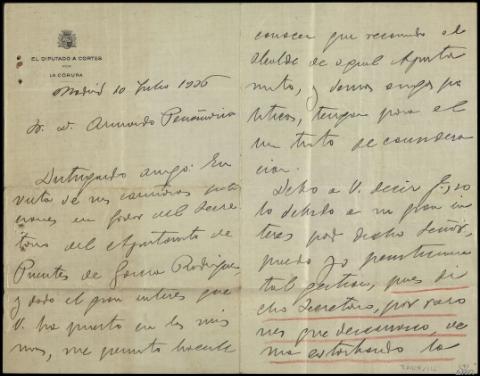 EL DIPUTADO A CORTES
POR
LA CORUÑA
Madrid 10 Julio 1936
Sr. D. Armando Peñamaria
Distinguido amigo: En
vista de sus cariñosas
en favor del Secre
tario del Ayuntamto de
Puentes de Garcia Rodriguez,
y dado el gran interes que
V. ha puesto en las mis
mas, me permito hacerle
conocer que recomendo al
Alcalde de aquel Ayunta
miento, y demas amigos po
liticos, tengan para el
un trato de considera
cion.
Debo a V. decir q. solo
lo debido a su gran in
teres por dicho Señor,
puedo yo
tal gestion, pues di
cho Secretario, por razo
nes que desconozco, ve
nia estorbando la